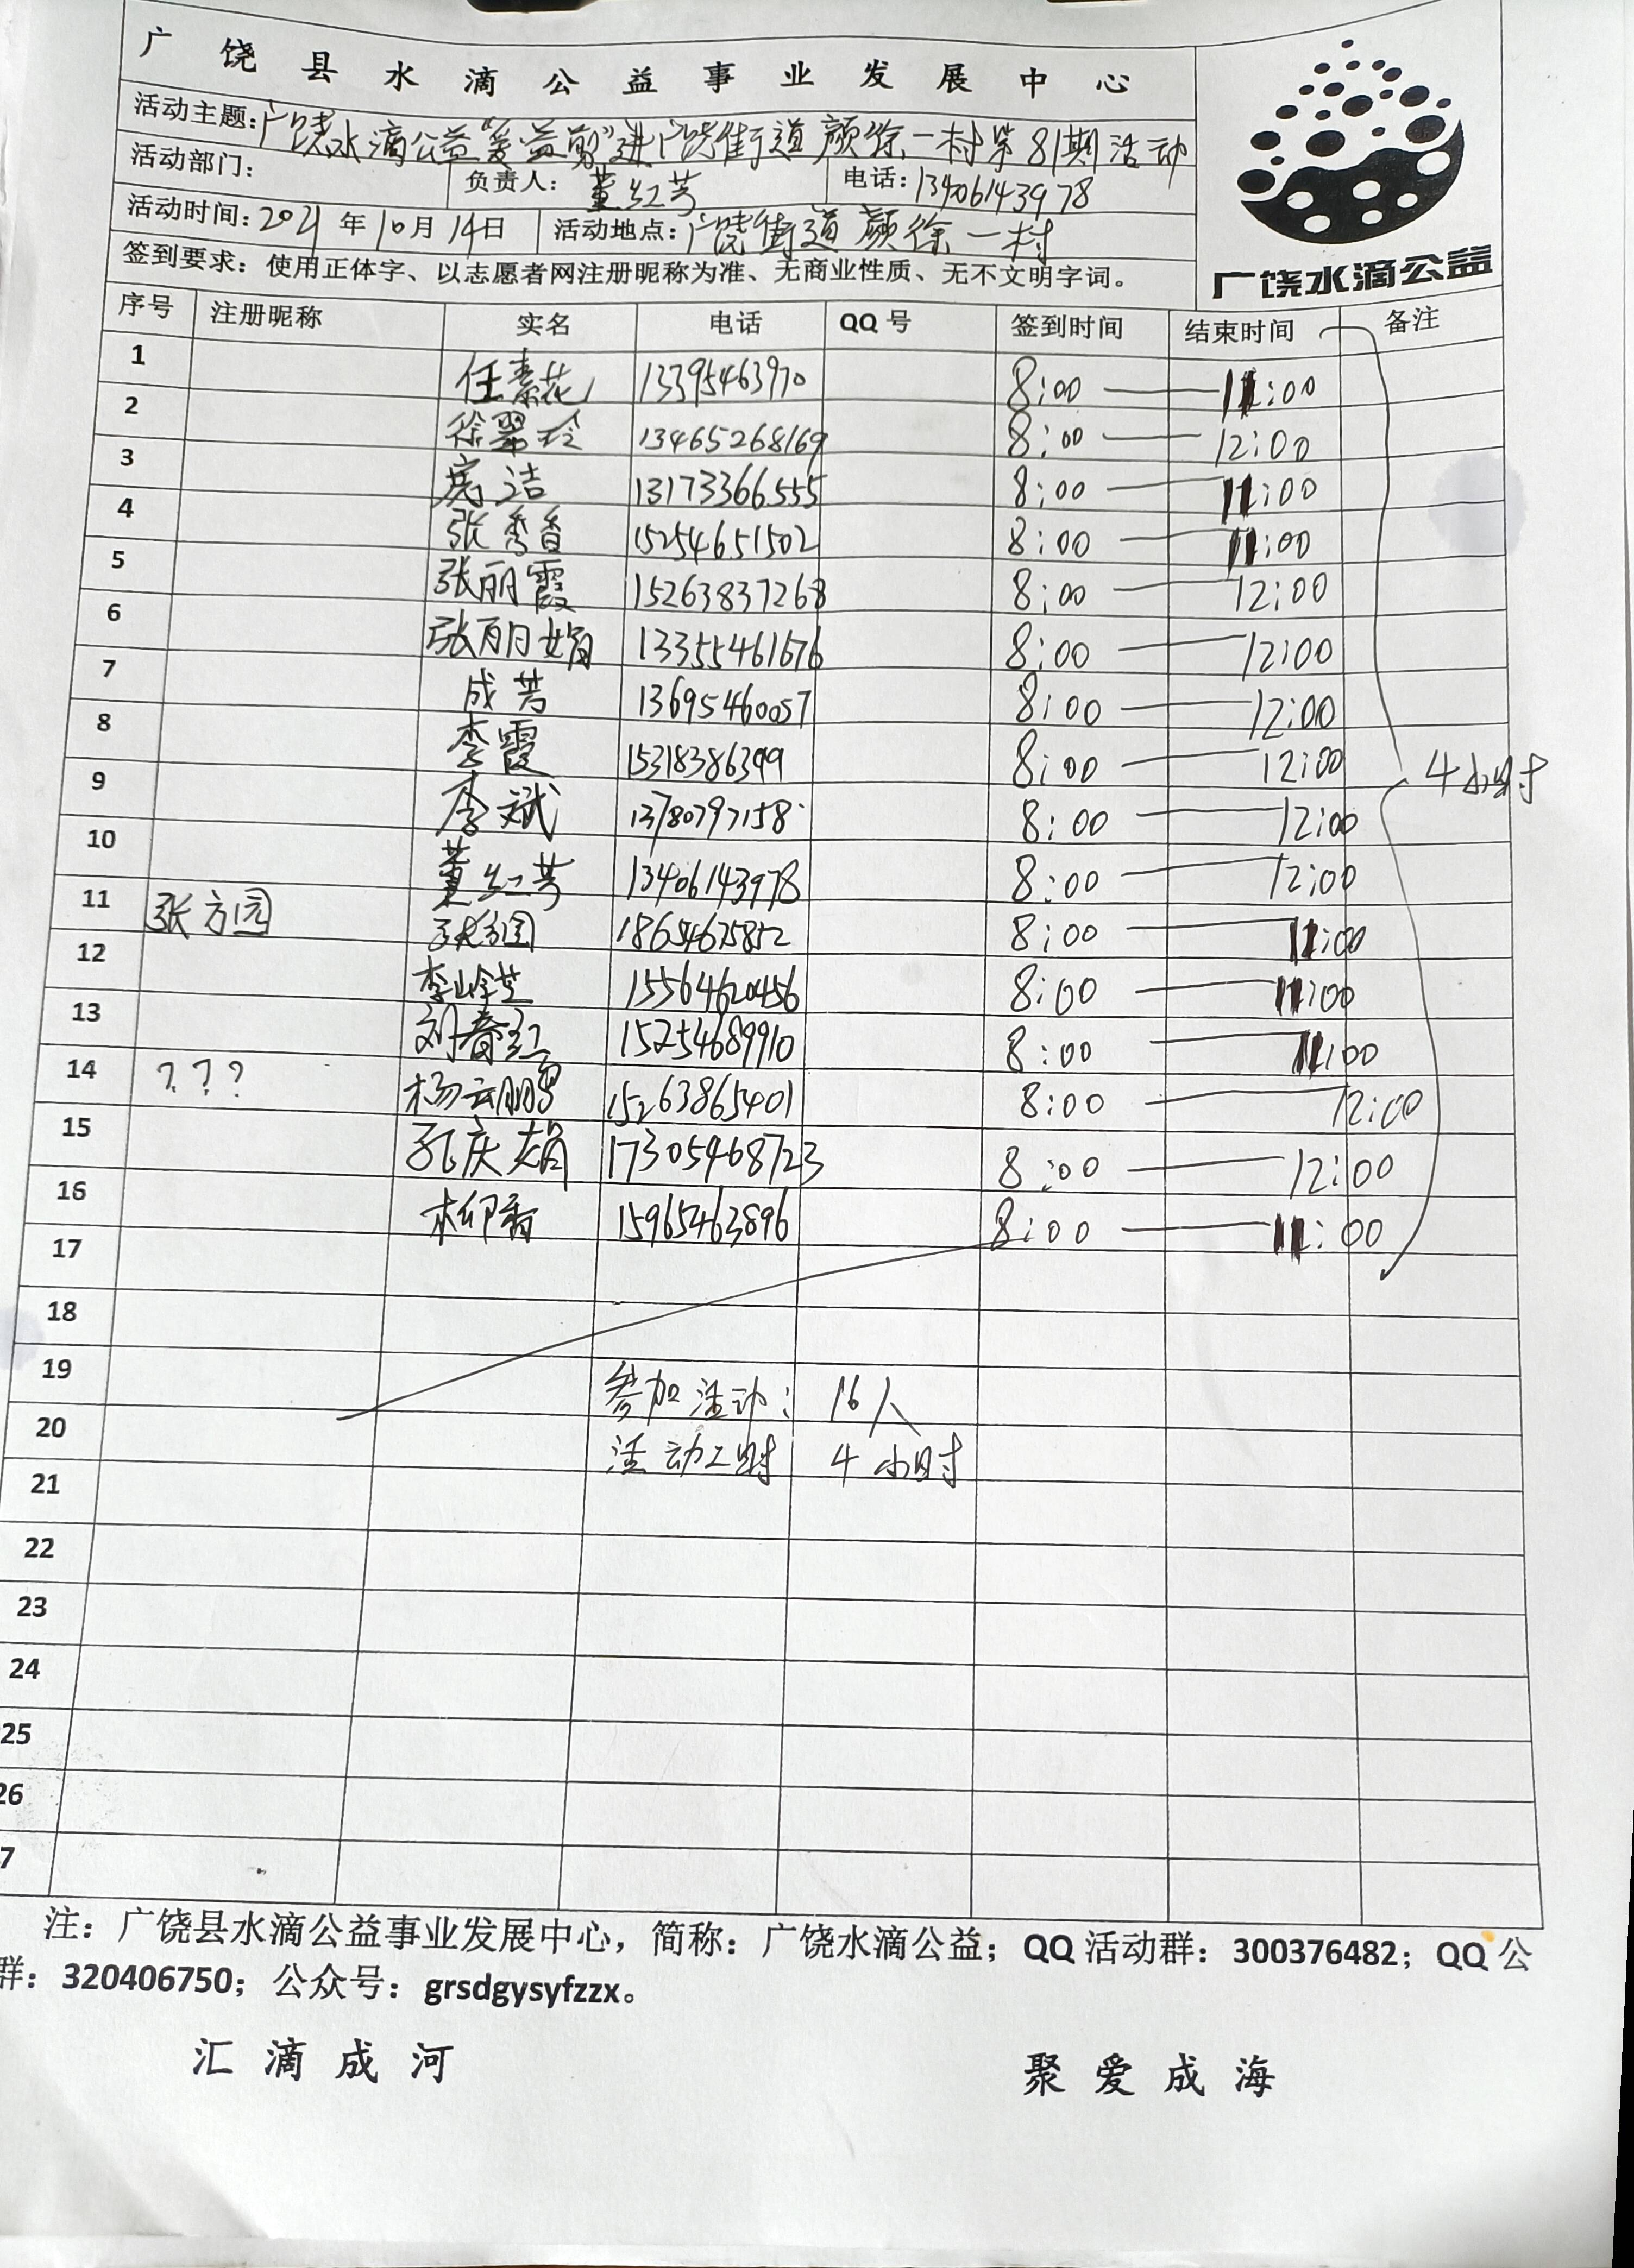 广饶县水滴公益事业发展中心
活动主题:广饶水滴公益"爱益剪"进广饶街道颜徐一村第81期活动
活动部门: 负责人: 董红芳 电话:13406143978
活动时间:2021年10月14日 活动地点:广饶街道颜徐一村
签到要求:使用正体字、以志愿者网注册昵称为准、无商业性质、无不文明字词。
广饶水滴公益
序号 注册昵称 实名 电话 QQ号 签到时间 结束时间 备注
1 任素花 13395463970 8:00 :00
2 徐翠玲 13465268169 8:00 12:00
3 房洁 13173366555 8:00 :00
4 张秀香 15254651502 8:00 :00
5 张丽霞 15263837268 8:00 12:00
6 张丽娟 13355461676 8:00 12:00
7 成芳 13695460057 8:00 12:00
8 李霞 15318386399 8:00 12:00
4小时
9 李斌 13780797158 8:00 12:00
10 董红芳 13406143978 8:00 12:00
11 张方园 张方园 18654675852 8:00 :00
12 李 芝 15564620456 8:00 :00
13 刘春红 15254689910 8:00 :00
14 ??? 杨云鹏 15263865401 8:00 12:00
15 孔庆娟 17305468723 8:00 12:00
16 柳香 15965463896 8:00 :00
17
18
19 参加活动: 16人
20 活动工时 4小时
21
22
23
24
25
26
7
注:广饶县水滴公益事业发展中心,简称:广饶水滴公益;QQ活动群:300376482;QQ公
群:320406750;公众号:grsdgysyfzzx。
汇滴成河 聚爱成海